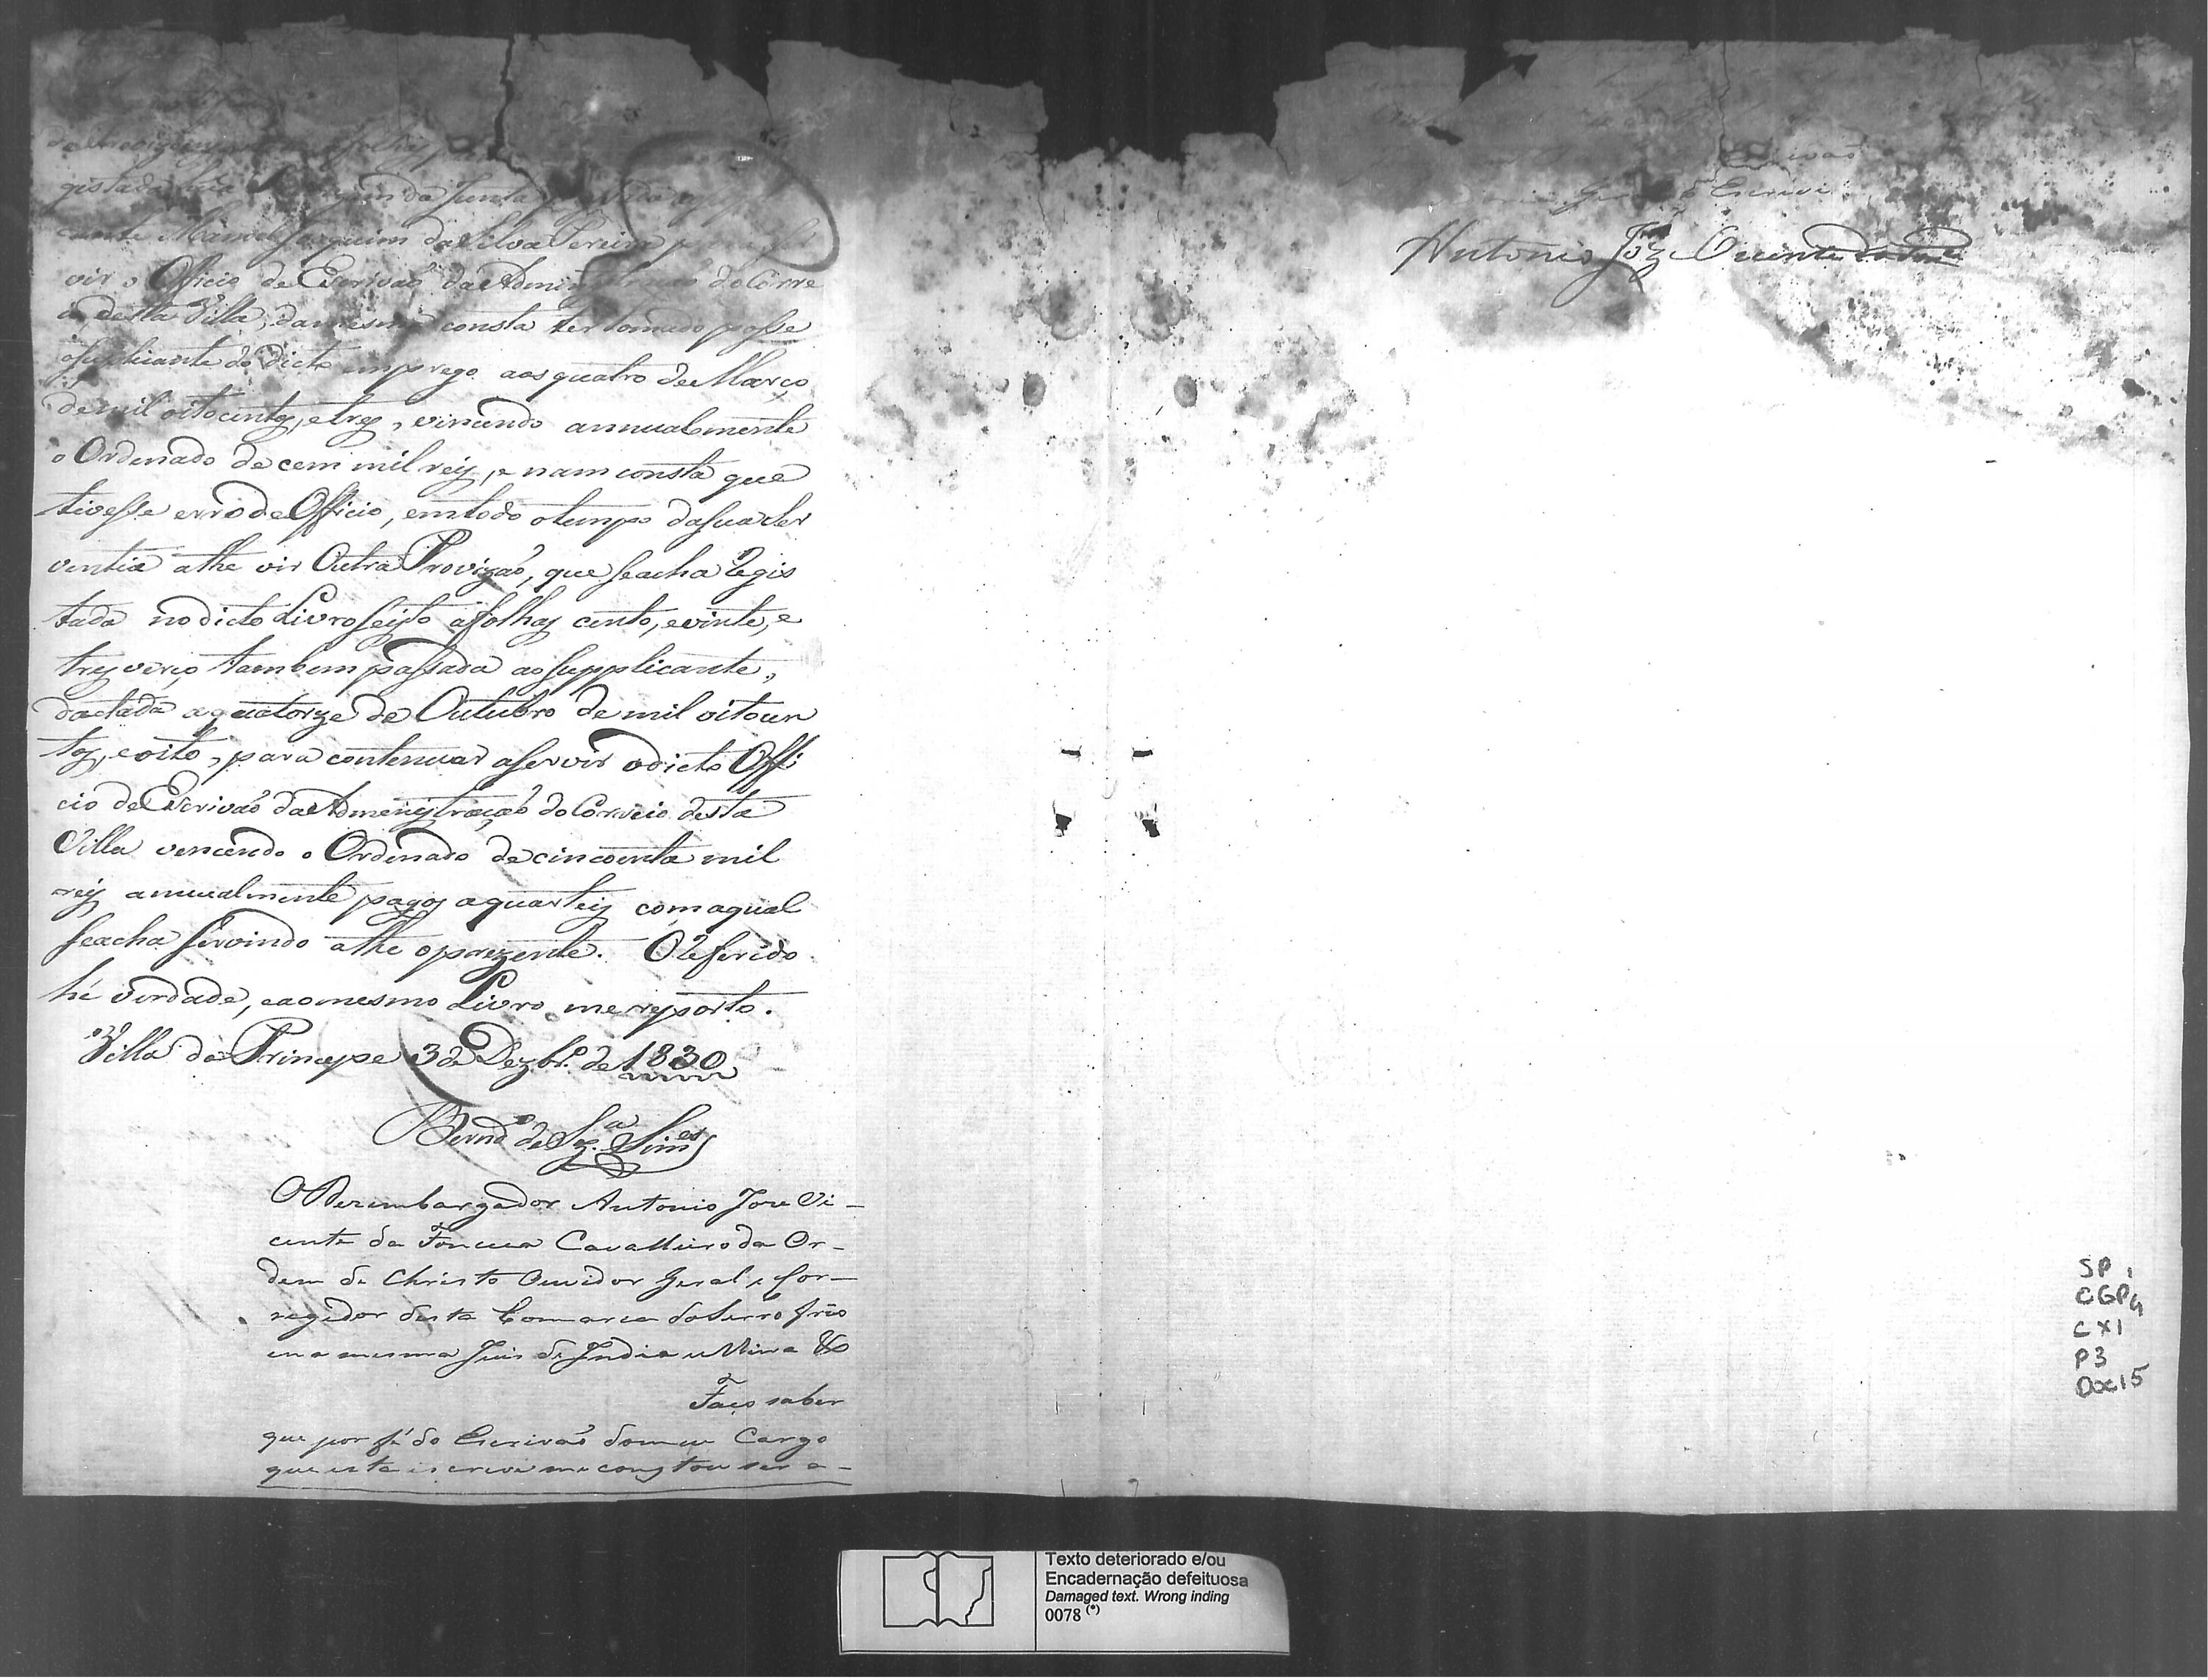 gistada da Junta
Manoel Joaquim da Silva Pereira
vir o Officio de Escrivaõ da do Corre
o desta Villa, da mesma consta ter tomado posse
o supplicante do dicto emprego aos quatro de Março
de mil oitocentos, e tres, vincendo annualmente
o Ordenado de cem mil reis, e nam consta que
tivesse erro de Officio, em todo o tempo da sua Ser
ventia athe vir Outra Provizaõ, que se acha Regis
tada no dicto Livro seisto a folhas cento, e vinte, e
tres verço tambem passada ao Supplicante,
dactada a quatorze de Outubro de mil oitocen
tos, e oito, para continuar a servir o dicto Offi
cio de Escrivaõ da Admenistraçaõ do Correio desta
Villa vencendo o Ordenado de cincoenta mil
reis annualmente pagos a quarteis com a qual
se acha servindo athe o prezente. O Referido
hé verdade, e ao mesmo Livro me reporto.
Villa do Principe 3 de Dezbrº. de 1830
Bernd.º de Sz.ª Sim.es
O Dezembargador Antonio Joze Vi-
cente da Fonceca Cavalleiro da Or-
dem de Christo Ouvidor Geral e Cor-
regedor desta Comarca do Serro frio
e na mesma Juis de India e Mina &
Faço saber
que por fé do Escrivaõ do meu Cargo
que esta escreve me constou ser a-
Escrivaõ
Escrevi
Antonio Joze Vicente da
SP,
CGP4
CX1
P3
Doc15
Texto deteriorado e/ou
Encadernação defeituosa
Damaged text. Wrong inding
0078 (*)